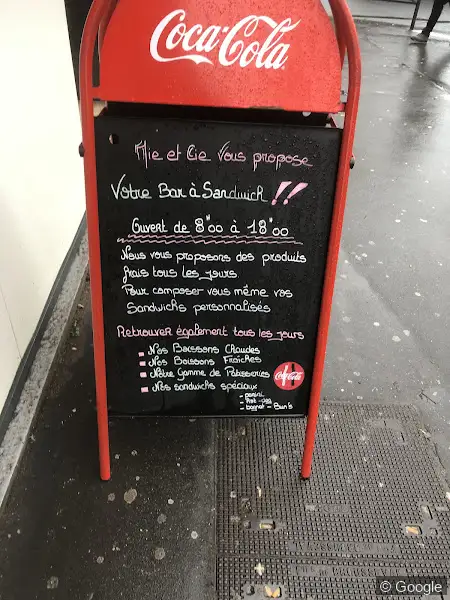 Coca-Cola
Mie et Cie Vous propose
Votre Bar à Sandwich !!
Ouvert de 8"00 à 18"00
Nous vous proposons des produits
frais tous les jours.
Pour composer vous même vos
Sandwichs personnalisés
Retrouver également tous les jours
Nos Boissons Chaudes
Nos Boissons Fraîches
Notre Gamme de Pâtisseries
Nos sandwichs spéciaux
Coca-Cola
- panini
- Hot-dog
- bagnat - Bun's
© Google